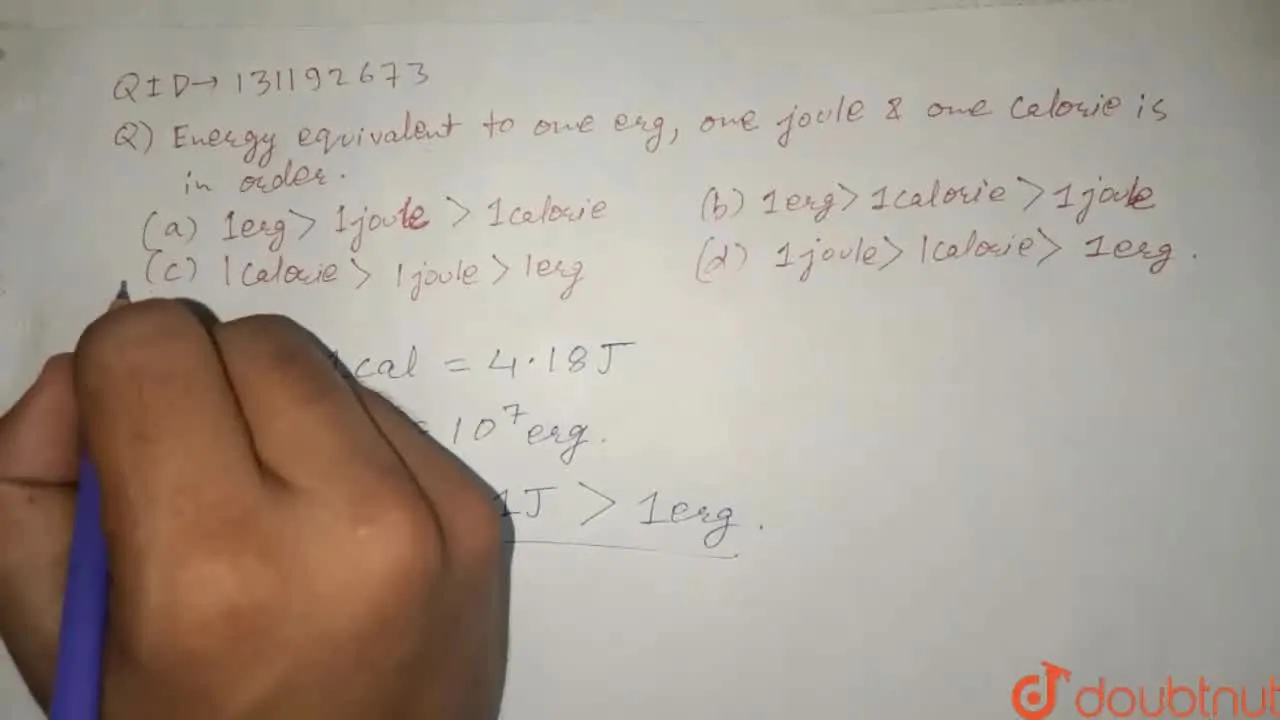 QID→131192673
Q) Energy equivalent to one erg, one joule & one calorie is
in order.
(a) 1erg > 1joule > 1calorie (b) 1erg > 1calorie > 1joule
(c) 1calorie > 1joule > 1erg (d) 1joule > 1calorie > 1erg.
1cal = 4.18J
= 10⁷ erg.
1J > 1erg.
doubtnut